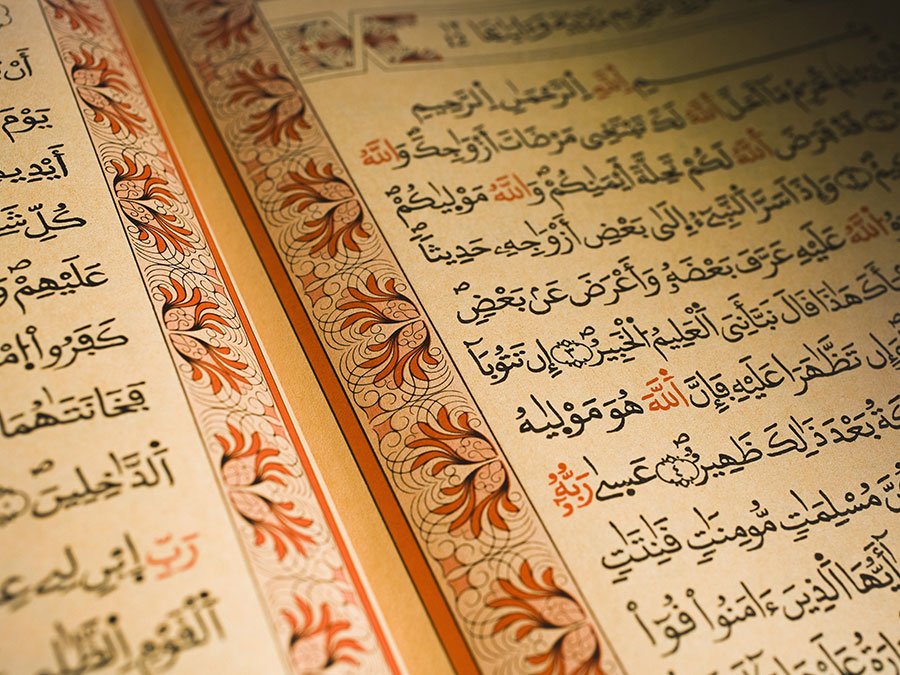 مَدَنِيَّة وَءَايَاتُهَا
بِسْمِ اِللَّهِ اِلرَّحْمَٰنِ اِلرَّحِيمِ
تُحَرِّمُ مَآ أَحَلَّ اَللَّهُ لَكَ تَبْتَغِے مَرْضَاتَ أَزْوَٰجِكَۖ وَاللَّهُ
قَدْ فَرَضَ اَللَّهُ لَكُمْ تَحِلَّةَ أَيْمَٰنِكُمْۖ وَاللَّهُ مَوْلَيٰكُمْۖ
وَإِذَ اَسَرَّ اَلنَّبِےٓءُ اِلَيٰ بَعْضِ أَزْوَٰجِهِۦ حَدِيثاًۖ
اُللَّهُ عَلَيْهِ عَرَّفَ بَعْضَهُۥ وَأَعْرَضَ عَنۢ بَعْضٖۖ
هَٰذَا قَالَ نَبَّأَنِيَ اَلْعَلِيمُ اُلْخَبِيرُۖ ٣ إِن تَتُوبَآ
وَإِن تَظَّٰهَرَا عَلَيْهِ فَإِنَّ اَللَّهَ هُوَ مَوْلَيٰهُ
بَعْدَ ذَٰلِكَ ظَهِيرٌۖ ٤ عَس۪يٰ رَبُّهُۥٓ
مُسْلِمَٰتٖ مُّومِنَٰتٖ قَٰنِتَٰتٖ
اَلذِينَ ءَامَنُواْ قُوٓاْ
عَلَيْهَا
يَوْمَ
أَيْدِيهِمْ
كُلِّ
عَلَيْهِمْۖ
كَفَرُواْ
فَخَانَتَٰهُمَا
اَلدَّٰخِلِينَۖ
رَبِّ اِبْنِ لِے
اَلْقَوْمِ